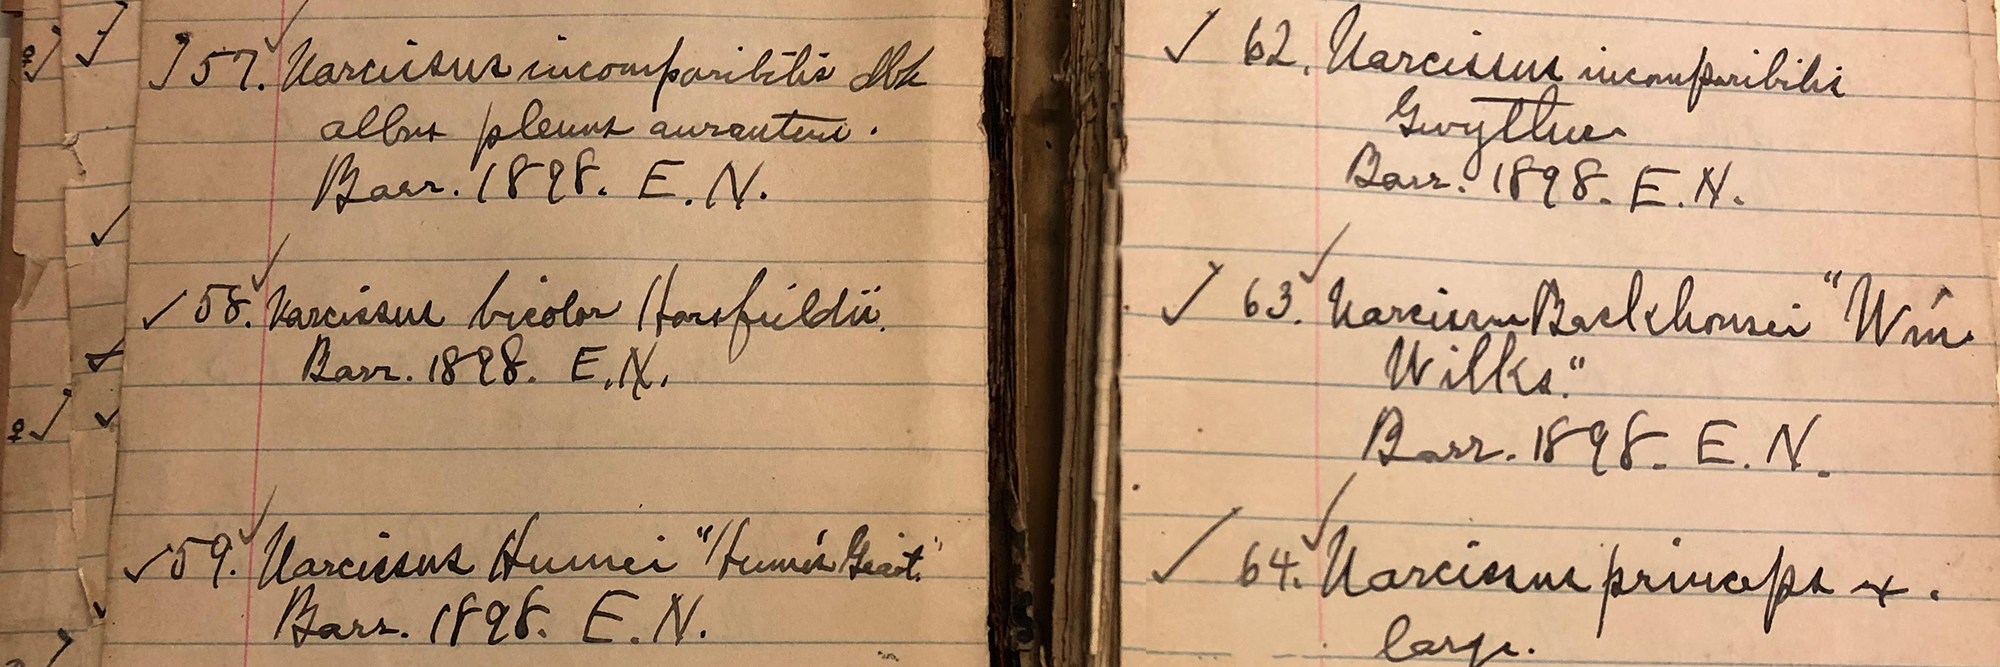 57. Narcissus incomparibilis dbl.
albus plenus aurantem.
Barr. 1898. E.N.
58. Narcissus bicolor Horsfieldii.
Barr. 1898. E.N.
59. Narcissus Humei "Hume's Giant."
Barr. 1898. E.N.
62. Narcissus incomparibilis
Gwyther
Barr. 1898. E.N.
63. Narcissus Backhousei "Wm
Wilks."
Barr. 1898. E.N.
64. Narcissus princeps
large.